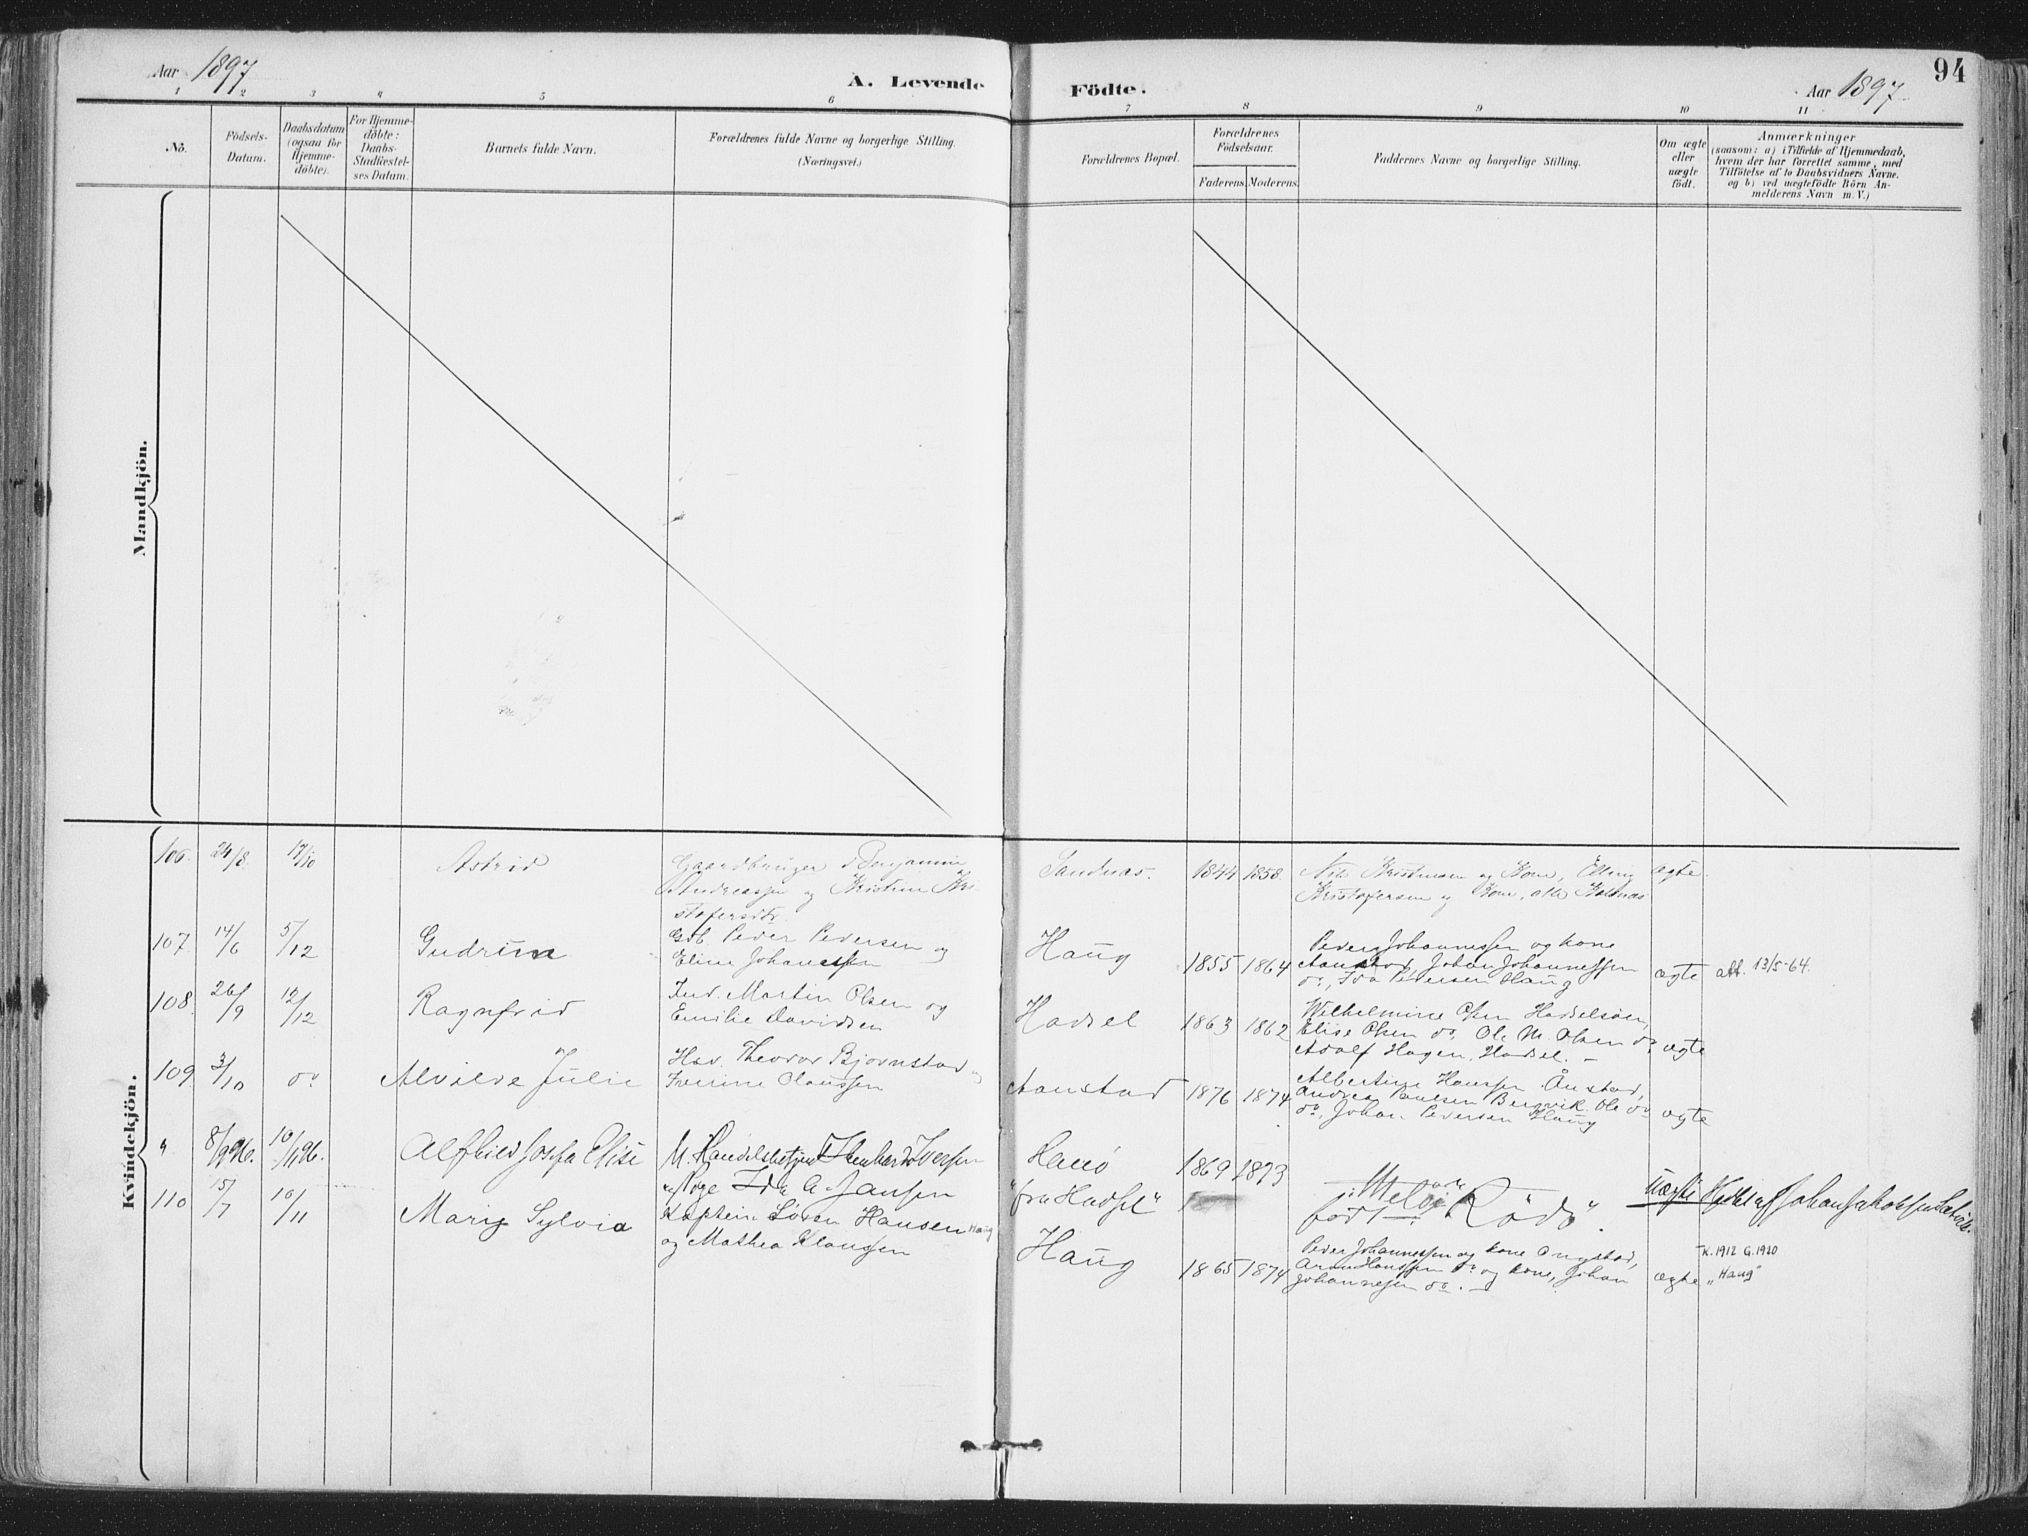 Aar 1897
A. Levende Födte.
Aar 1897
94
1 2 3 4 5 6 7 8 9 10 11
No.
Födsels-
Datum.
Daabsdatum
(ogsaa for
Hjemme-
døbte).
For Hjemme-
døbte:
Daabs-
Stadfæstel-
ses Datum.
Barnets fulde Navn.
Forældrenes fulde Navne og borgerlige Stilling.
(Næringsvei.)
Forældrenes Bopæl.
Forældrenes
Födselsaar.
Faderens.
Moderens.
Faddernes Navne og borgerlige Stilling.
Om ægte
eller
uægte
födt.
Anmærkninger
(saasom: a) i Tilfælde af Hjemmedaab,
hvem der har forrettet samme, med
Tilföielse af to Daabsvidners Navne.
og b) ved uægtefödte Börn An-
melderens Navn m. V.)
Mandkjön.
Kvindekjön.
106. 24/8. 17/10 Astrid
Gaardbruger Benjamin
Andreassen og Kristine Kri-
stofersdtr.
Sandnæs. 1844 1858.
Kristofersen og Kone,
ægte.
107 14/6 5/12 Gudrun
Gdb. Peder Pedersen og
Eline Johanessen
Haug 1855 1864
Peder Johannessen og kone
Aanstad, Johan Johannessen
do, Ida Pedersen Haug
ægte att. 13/5-64.
108 26/9 12/12 Ragnfrid
Ind. Martin Olsen og
Emilie Davidsen
Hadsel 1863 1862
Wilhelmine Olsen Hadseløen,
Elise Olsen do, Ol. M. Olsen do,
Adolf Hagen, Hadsel. –
ægte
109 3/10 do Alvilde Julie
Hsv. Theodor Bjørnstad og
Irene Claussen
Aanstad 1876 1874
Albertine Hanssen Ånstad,
Andrea Paulsen Bergvik. Ole do
do, Johan Pedersen Haug
ægte
" 8/9 96. 10/11 96. Alfhild Josefa Elise
Iversen
Ida A. Jansen
"fra Hadsel"
1869 1873
Melø
född Rödö".
Uægte
110 15/7 10/11 Marig Sylvia
Kaptein Søren Hansen Haug
og Mathea Klaussen
Haug 1865 1874
Peder Johannessen og kone Ongstad,
Aron Hanssen do og kone, Johan
Johannessen do. –
ægte
K. 1912 G. 1920
"Haug"